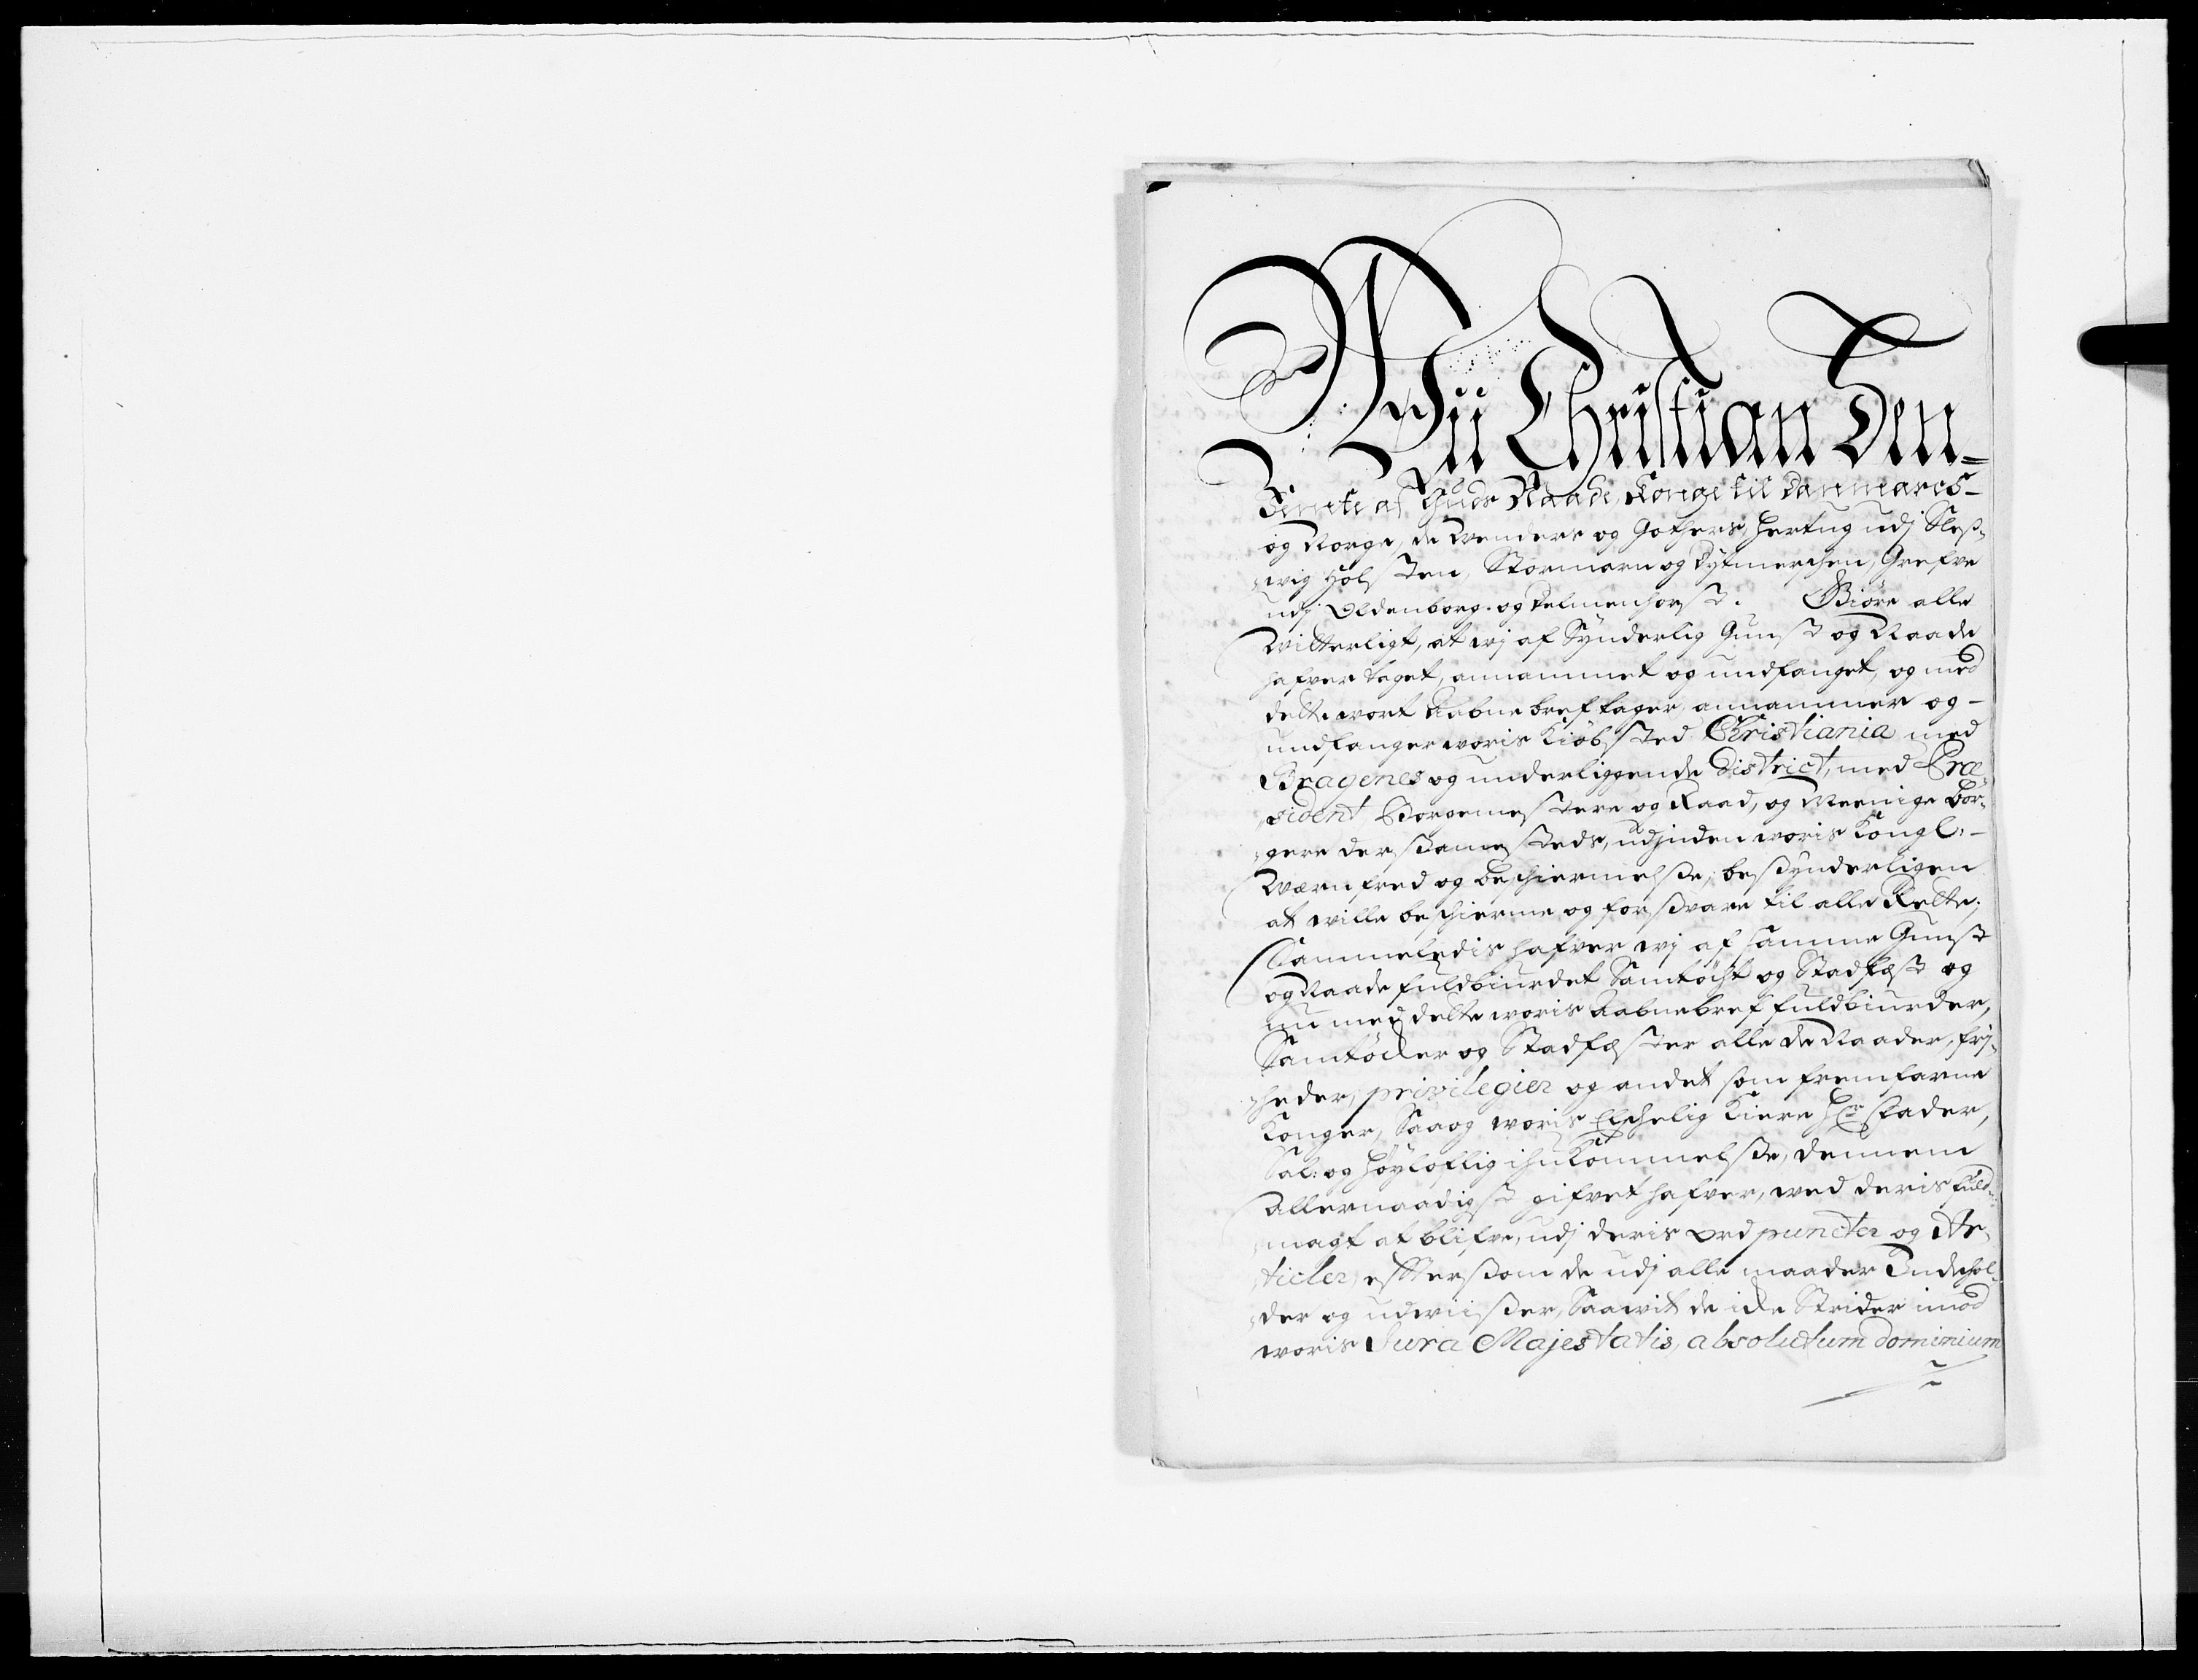 Wii Christian Den-
Femte af Guds Naade, Konge til Danmarcs-
og Norge, de Wenders og Gothers, Hertug udj Sleß-
wig Holsten, Stormarn og Dytmerschen, Grefve
udj Oldenborg og Delmenhorst. Giöre alle
Witterligt, at wj af Synderlig Gunst og Naade
hafver taget, annammet og undfanget, og med
dette wort Aabne bref tager, annammer og -
undfanger woris Kiöbsted Christiania med
Bragenes og underliggende District, med Præ-
sident Borgemestere og Raad, og Meenige Bor-
gere dersammesteds, udjnden woris Kongl: -
Wærn fred og beschiermelße, besßynderligen
at wille beschierme og forsvare til alle Rette;
Sammeledis hafver wj af samme Gunst
og Naade fuldbiurdet Samtöcht og Stadfæst og
nu med dette woris Aabne bref fuldbiurder,
Samtöcker og Stadfæster alle de Naader, frj-
heder, privilegier og andet som fremfarne
Konger, Saa og woris Elschelig Kiere Hr. Fader,
Sal: og Höyloflig ihukommelße, dennem
Allernaadigst gifvet hafver, ved deris fuld-
magt at blifve, udj deris ord puncter og Ar-
ticler, efftersom de udj alle maader Indehol-
der og udwiißer, Saawit de icke Strider imod
woris Jura Majestatis, absolutum dominium